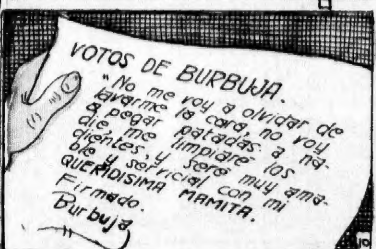 VOTOS DE BURBUJA.
"No me voy a olvidar de
lavarme la cara, no voy
a pegar patadas a na-
die, me limpiare los
dientes, y seré muy ama-
ble y servicial con mi
QUERIDISIMA MAMITA.
Firmado.
Burbuja